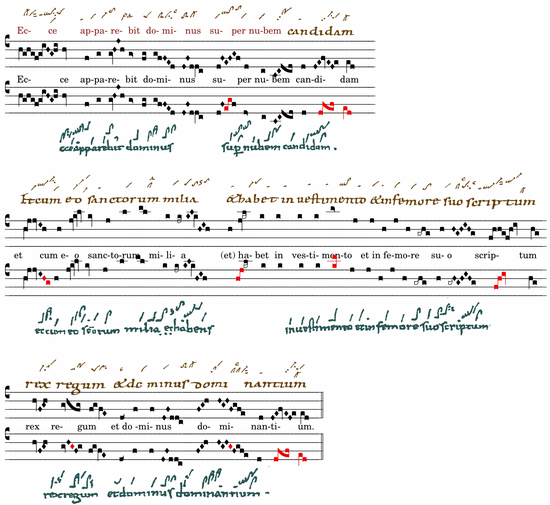 Ec- ce ap-pa-re- bit do-mi- nus su- per nu-bem candidam
Ec- ce ap-pa-re- bit do-mi- nus su- per nu-bem can-di- dam
ecce apparebit dominus sup̄ nubem candidam .
Et cum eo sanctorum milia & habet in uestimento & in femore suo scriptum
et cum e- o sanc-to-rum mi- li- a (et) ha- bet in ves-ti- men-to et in fe-mo-re su- o scrip- tum
et cum eo sc̄orum milia et habens in uestimento et in femore suo scriptum
rex regum & do minus domi nantium
rex re- gum et do -mi- nus do- mi- nan-ti- um.
rex regum et dominus dominantium -